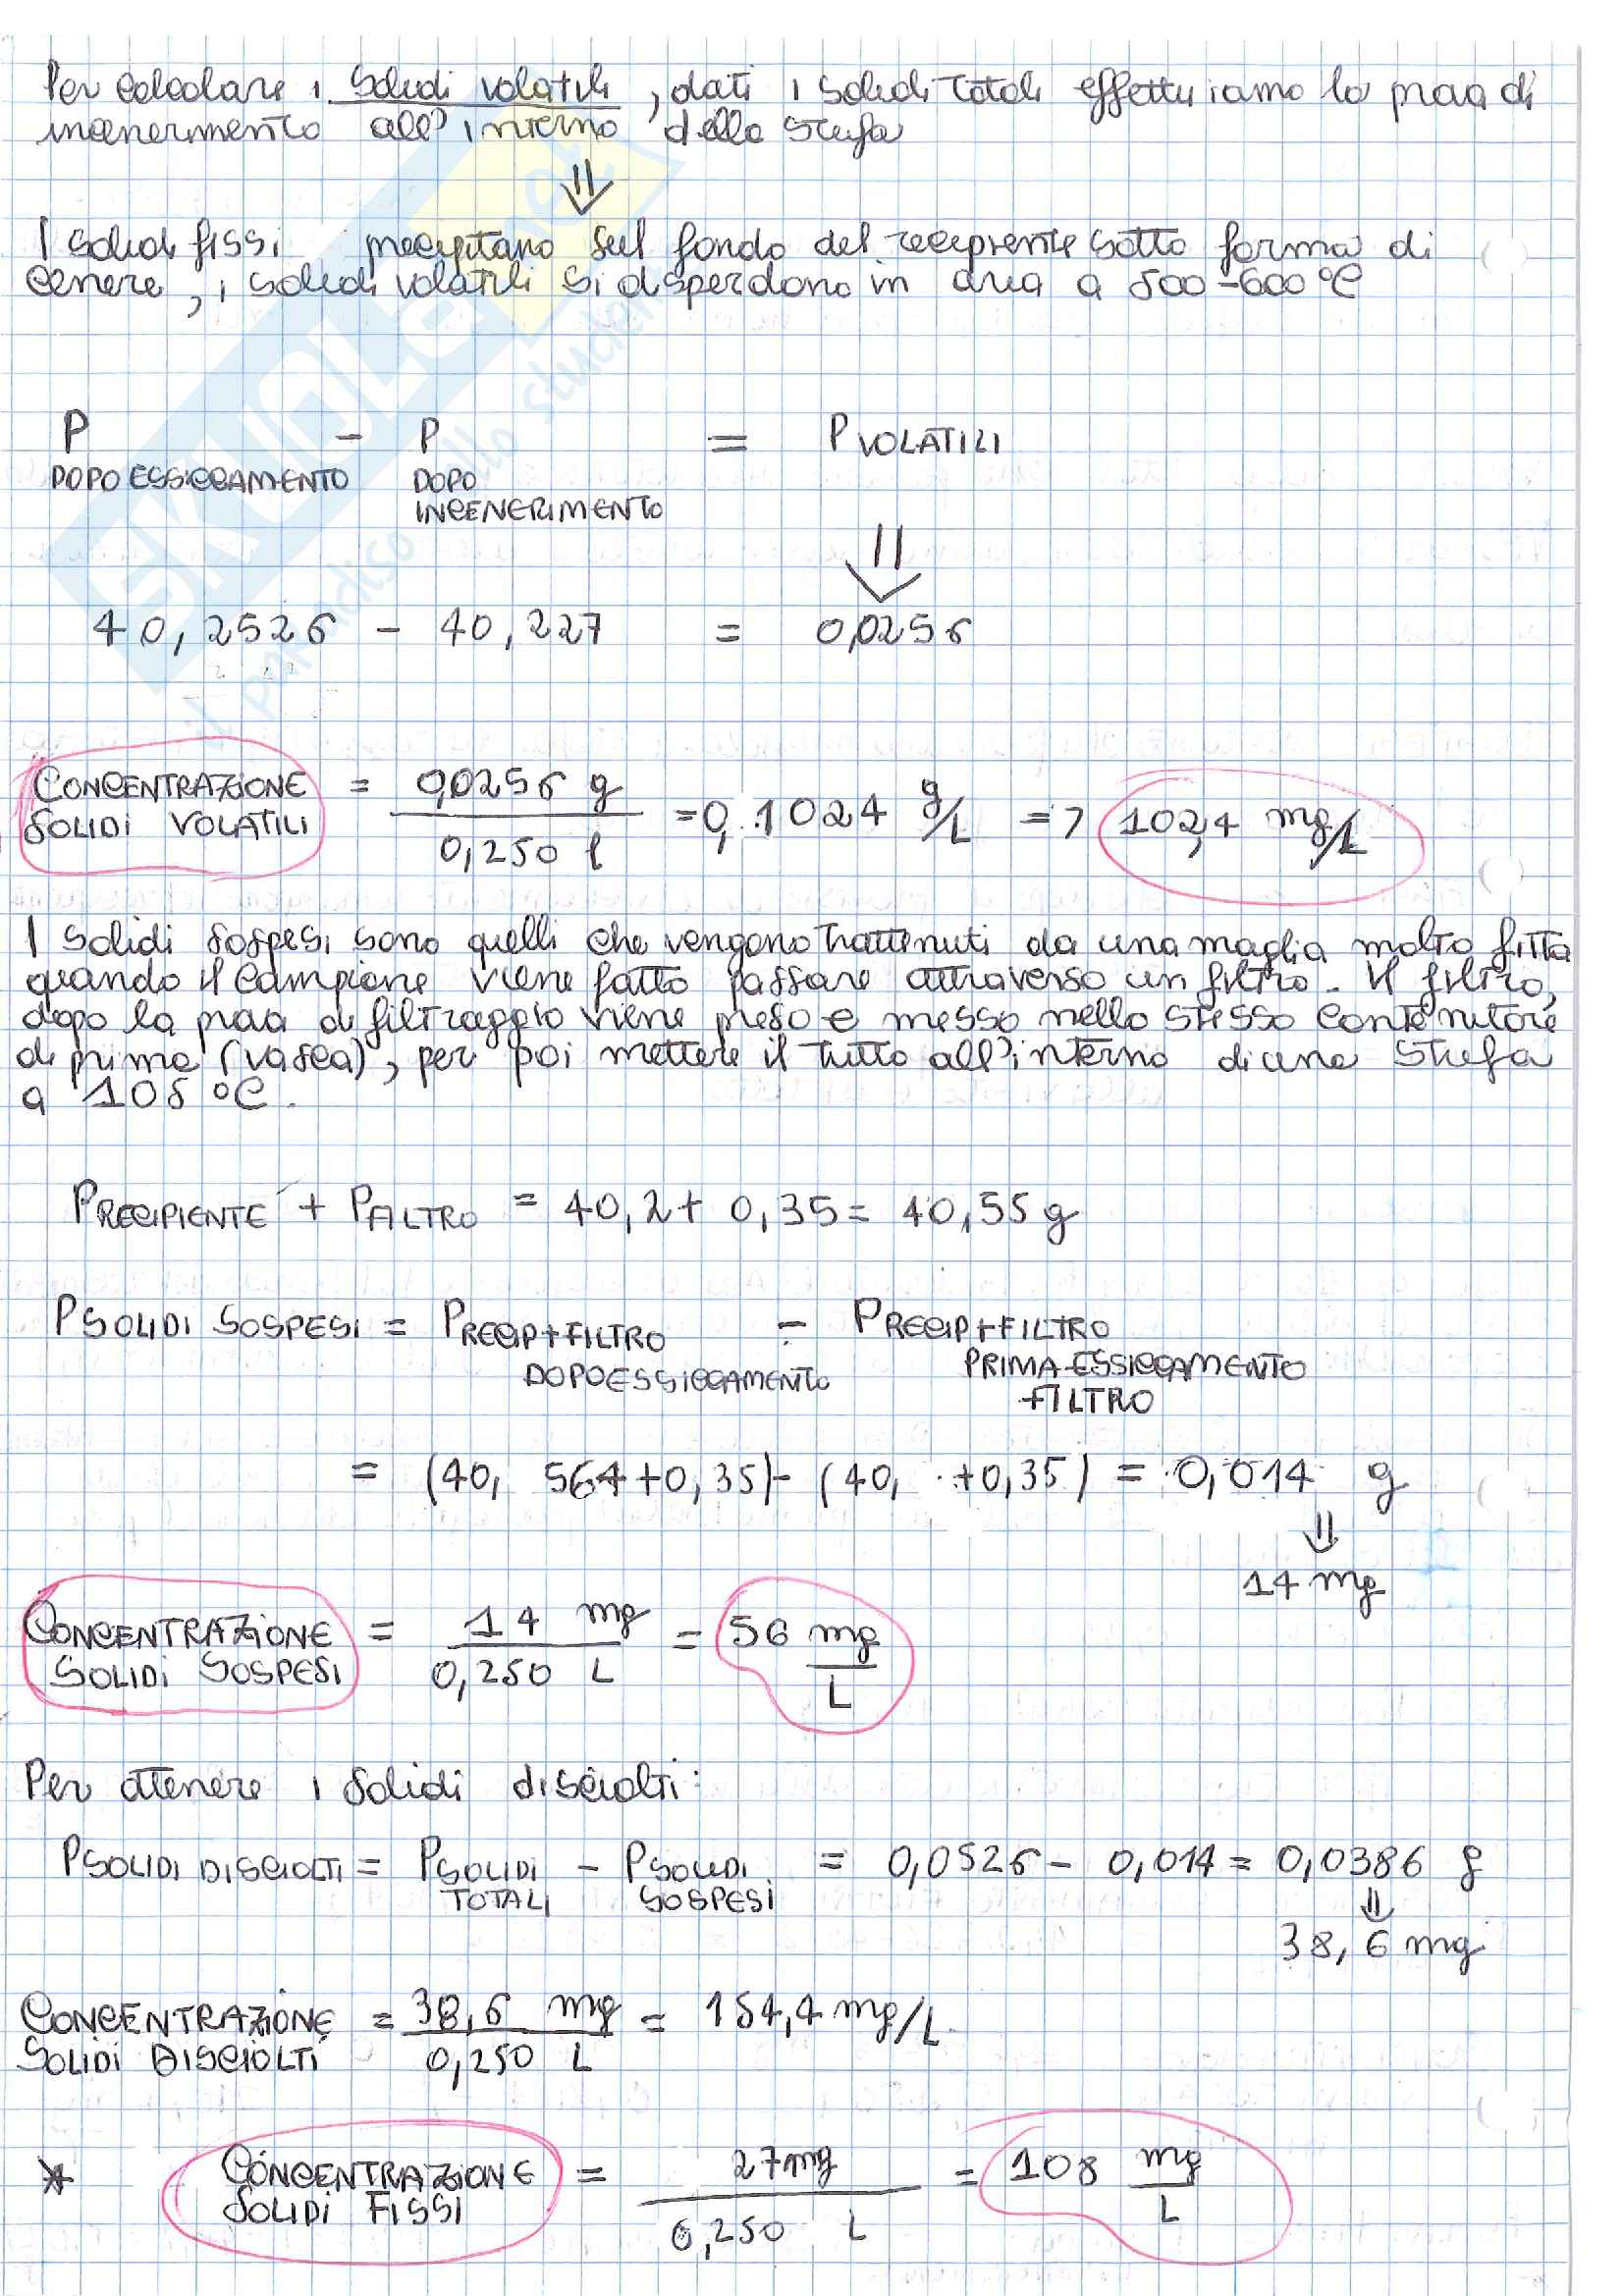 Per calcolare i solidi volatili, dati i solidi totali effettuiamo la prova di
incenerimento all'interno della stufa
⇓
I solidi fissi precipitano sul fondo del recipiente sotto forma di
cenere, i solidi volatili si disperdono in aria a 500-600 °C
P - P = P VOLATILI
DOPO ESSICCAMENTO DOPO
INCENERIMENTO
⇓
40,2526 - 40,227 = 0,0256
CONCENTRAZIONE SOLIDI VOLATILI = 0,0256 g / 0,250 l = 0,1024 g/L => 102,4 mg/L
I solidi sospesi sono quelli che vengono trattenuti da una maglia molto fitta
quando il campione viene fatto passare attraverso un filtro. Il filtro,
dopo la prova di filtraggio viene preso e messo nello stesso contenitore
di prima (vasca), per poi mettere il tutto all'interno di una stufa
a 105 °C.
PRECIPIENTE + PFILTRO = 40,2 + 0,35 = 40,55 g
PSOLIDI SOSPESI = PRECIP+FILTRO - PRECIP+FILTRO
DOPO ESSICCAMENTO PRIMA ESSICCAMENTO
+FILTRO
= (40, 564+0,35) - (40, +0,35) = 0,014 g
⇓
14 mg
CONCENTRAZIONE SOLIDI SOSPESI = 14 mg / 0,250 L = 56 mg/L
Per ottenere i solidi disciolti:
PSOLIDI DISCIOLTI = PSOLIDI TOTALI - PSOLIDI SOSPESI = 0,0526 - 0,014 = 0,0386 g
⇓
38,6 mg
CONCENTRAZIONE SOLIDI DISCIOLTI = 38,6 mg / 0,250 L = 154,4 mg/L
* CONCENTRAZIONE SOLIDI FISSI = 27mg / 0,250 L = 108 mg/L